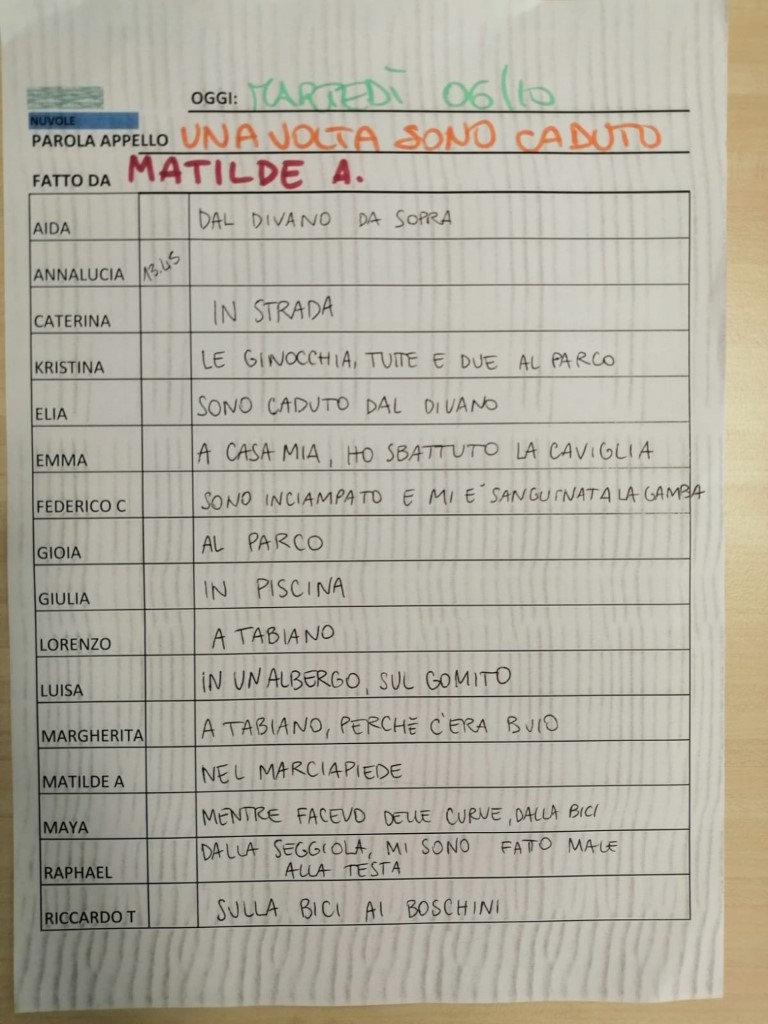 OGGI: MARTEDÌ 06/10
NUVOLE
PAROLA APPELLO UNA VOLTA SONO CADUTO
FATTO DA MATILDE A.
AIDA DAL DIVANO DA SOPRA
ANNALUCIA 13.45
CATERINA IN STRADA
KRISTINA LE GINOCCHIA, TUTTE E DUE AL PARCO
ELIA SONO CADUTO DAL DIVANO
EMMA A CASA MIA, HO SBATTUTO LA CAVIGLIA
FEDERICO C SONO INCIAMPATO E MI E' SANGUINATA LA GAMBA
GIOIA AL PARCO
GIULIA IN PISCINA
LORENZO A TABIANO
LUISA IN UN ALBERGO, SUL GOMITO
MARGHERITA A TABIANO, PERCHÈ C'ERA BUIO
MATILDE A NEL MARCIAPIEDE
MAYA MENTRE FACEVO DELLE CURVE, DALLA BICI
RAPHAEL DALLA SEGGIOLA, MI SONO FATTO MALE
ALLA TESTA
RICCARDO T SULLA BICI AI BOSCHINI